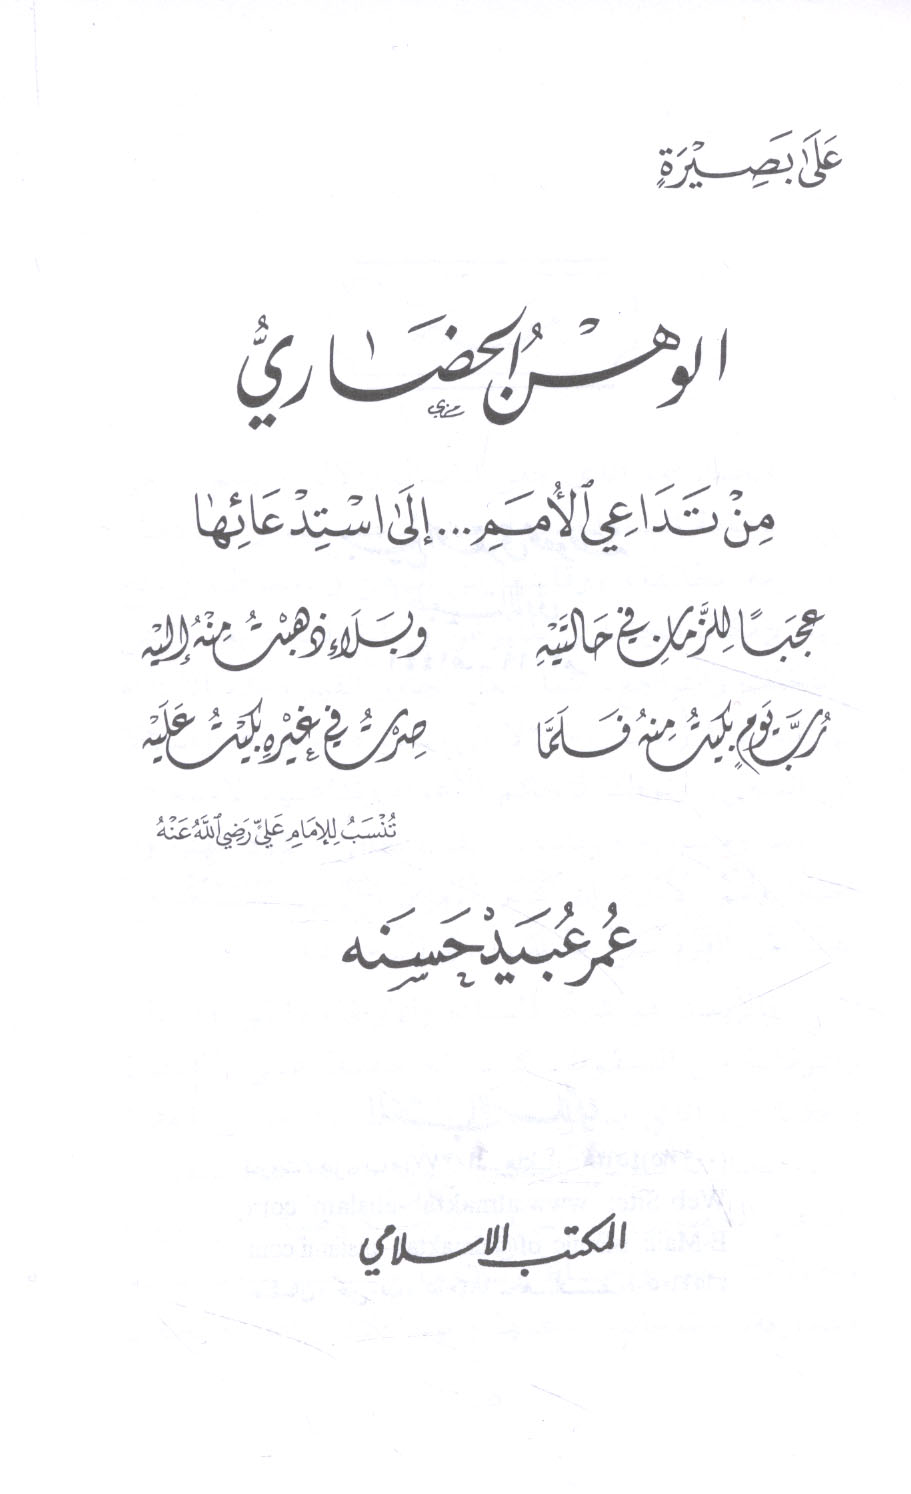 عَلَىٰ بَصِيْرَةٍ
الوهْنُ الحضَاريُّ
مِنْ تَدَاعِي الأُمَمِ... إلَىٰ اسْتِدْعَائِهَا
عجَبًا لِلزَّمانِ في حَالتَيْهِ وبَلَاءٍ ذهبْتُ مِنْهُ إليْهِ
رُبَّ يَومٍ بكيتُ مِنهُ فَلَمَّا صِرْتُ في غيْرِهِ بكيْتُ عَلَيْهِ
تُنْسَبُ لِلإمَامِ عَلِيٍّ رَضِيَ اللَّهُ عَنْهُ
عُمر عُبَيدْ حَسَنِه
المكتب الإسلامي